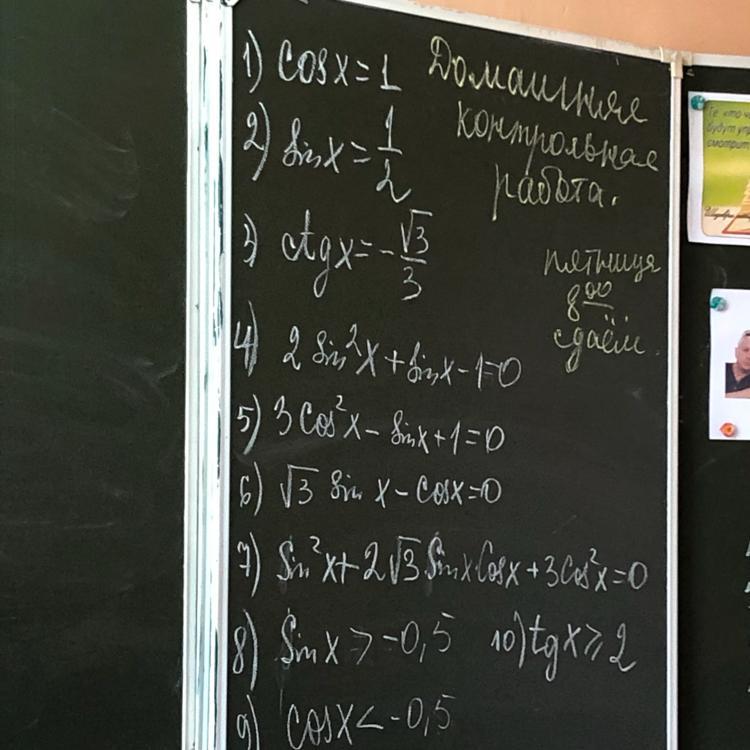 1) cosx=1
2) sinx=1/2
3) ctgx=-√3/3
4) 2 sin²x+sinx-1=0
5) 3cos²x-sinx+1=0
6) √3 sin x-cosx=0
7) sin²x+2√3sinx cosx+3cos²x=0
8) sinx>-0,5
9) cosx<-0,5
10) tgx≥2
Домашняя
контрольная
работа.
пятница
8 00
сдаём.
Те кто
будут
смотрит